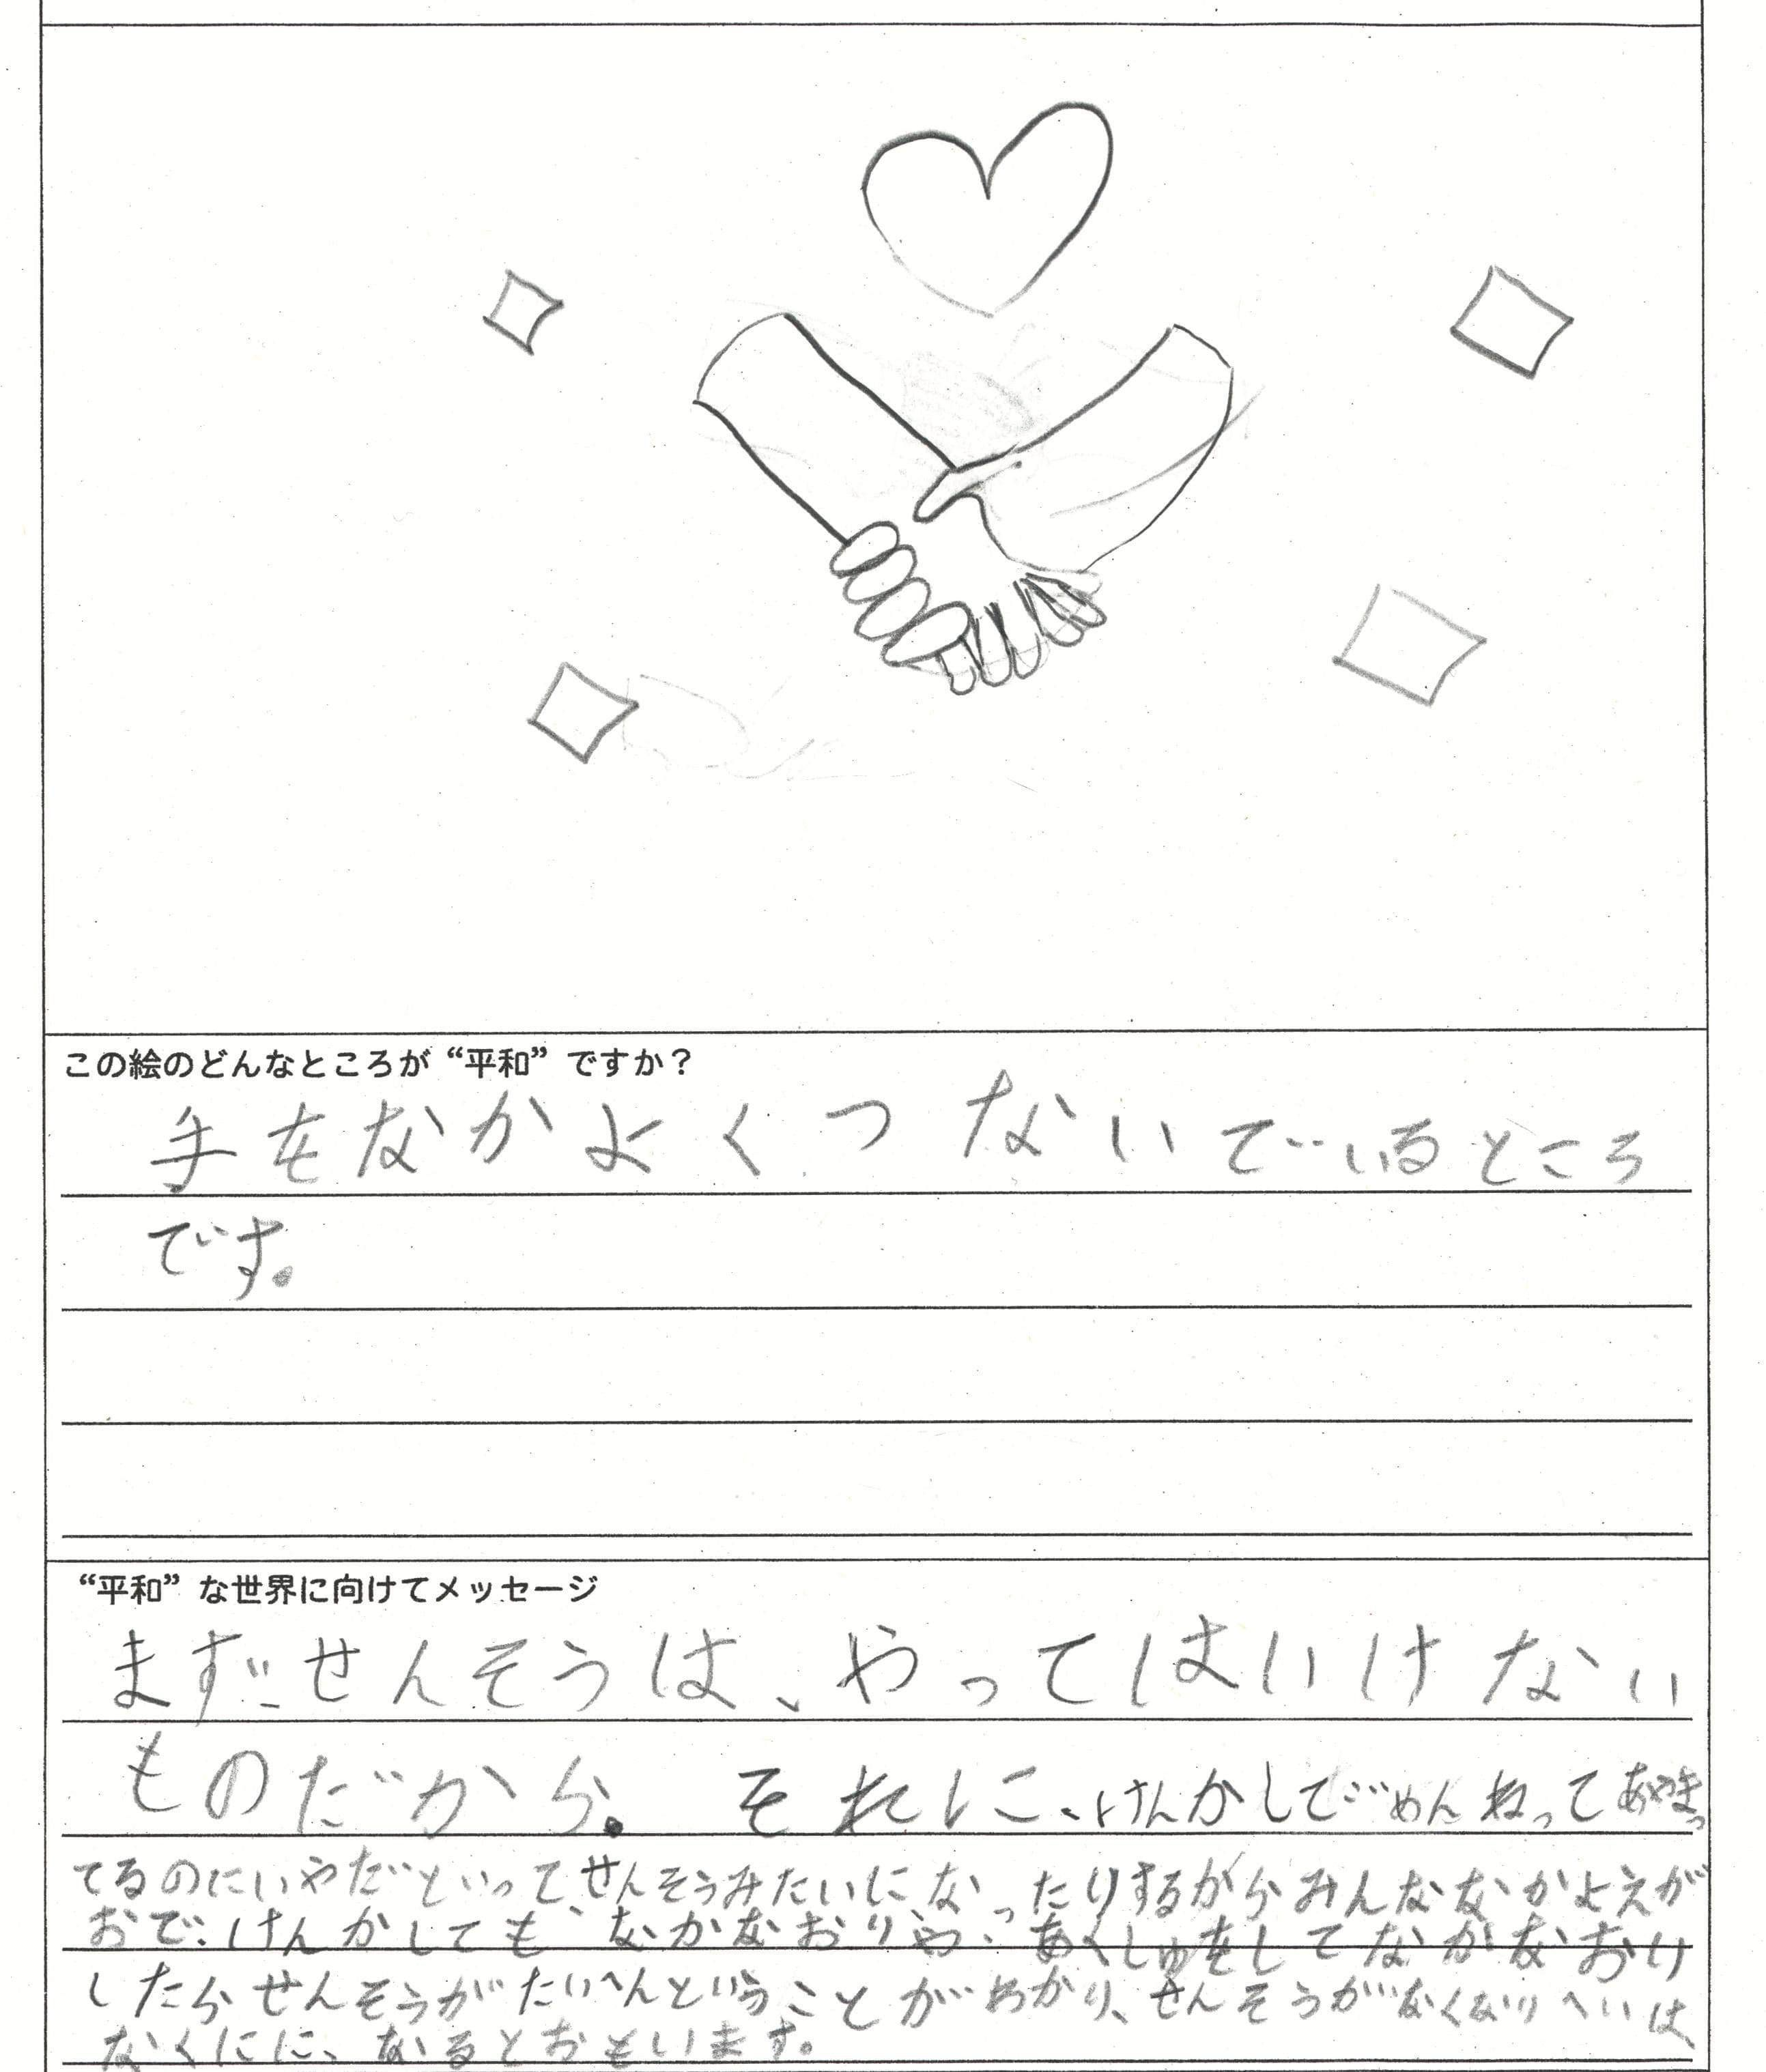 この絵のどんなところが“平和”ですか？
手をなかよくつないでいるところ
です。
“平和”な世界に向けてメッセージ
まず、せんそうは、やってはいけない
ものだから。それに、けんかしてごめんねってあやまっ
てるのにいやだといって、せんそうみたいになったりするからみんななかよえが
おで、けんかしても、なかなおりや、あくしゅをしてなかなおり
したらせんそうがたいへんということがわかり、せんそうがなくなりへいは、
なくにに、なるとおもいます。